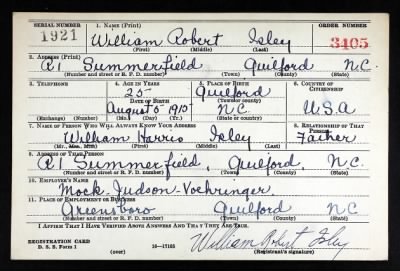 SERIAL NUMBER 1. NAME (Print) ORDER NUMBER
1921 William Robert Isley 3405
(First) (Middle) (Last)
2. ADDRESS (Print)
R1 Summerfield Guilford N.C.
(Number and street or R. F. D. number) (Town) (County) (State)
3. TELEPHONE 4. AGE IN YEARS 5. PLACE OF BIRTH 6. COUNTRY OF CITIZENSHIP
25 Guilford
DATE OF BIRTH (Town or county)
August 5 1915 N.C. U.S.A
(Exchange) (Number) (Mo.) (Day) (Yr.) (State or country)
7. NAME OF PERSON WHO WILL ALWAYS KNOW YOUR ADDRESS 8. RELATIONSHIP OF THAT PERSON
William Harris Isley Father
(Mr., Mrs., Miss) (First) (Middle) (Last)
9. ADDRESS OF THAT PERSON
R1 Summerfield, Guilford, N.C.
(Number and street or R. F. D. number) (Town) (County) (State)
10. EMPLOYER'S NAME
Mock-Judson-Voehringer
11. PLACE OF EMPLOYMENT OR BUSINESS
Greensboro Guilford N.C.
(Number and street or R. F. D. number) (Town) (County) (State)
I AFFIRM THAT I HAVE VERIFIED ABOVE ANSWERS AND THAT THEY ARE TRUE.
REGISTRATION CARD William Robert Isley
D. S. S. Form 1 (over) 16—17105 (Registrant's signature)